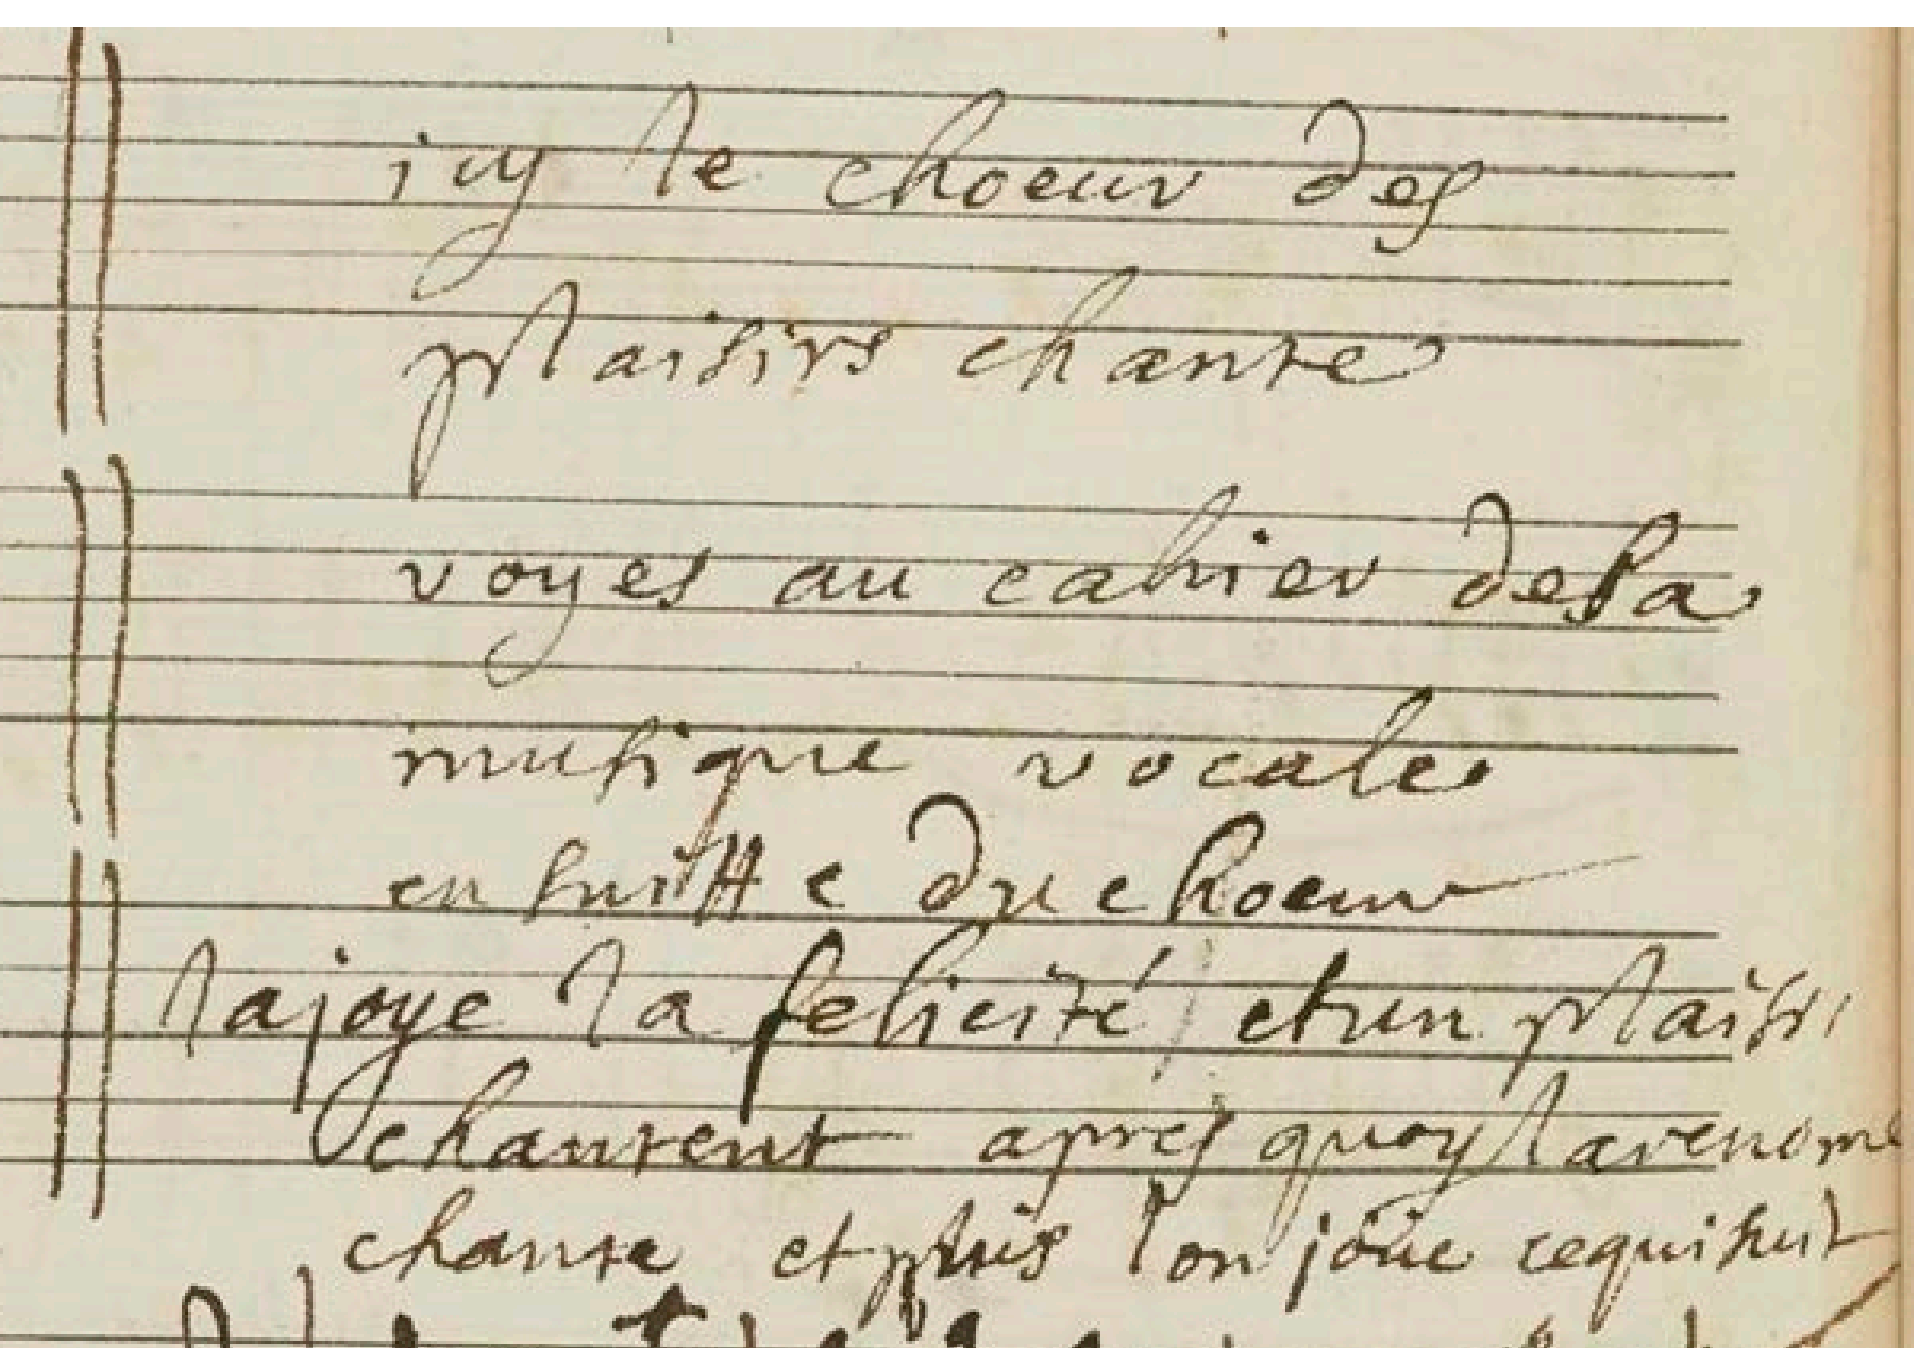 icy le choeur des
plaisirs chante
voyes au cahier dela
musique vocale
ensuitte du choeur
lajoye la felicité etun plaisir
chantent apres quoy larenome
chante et puis lon joüe cequisuit